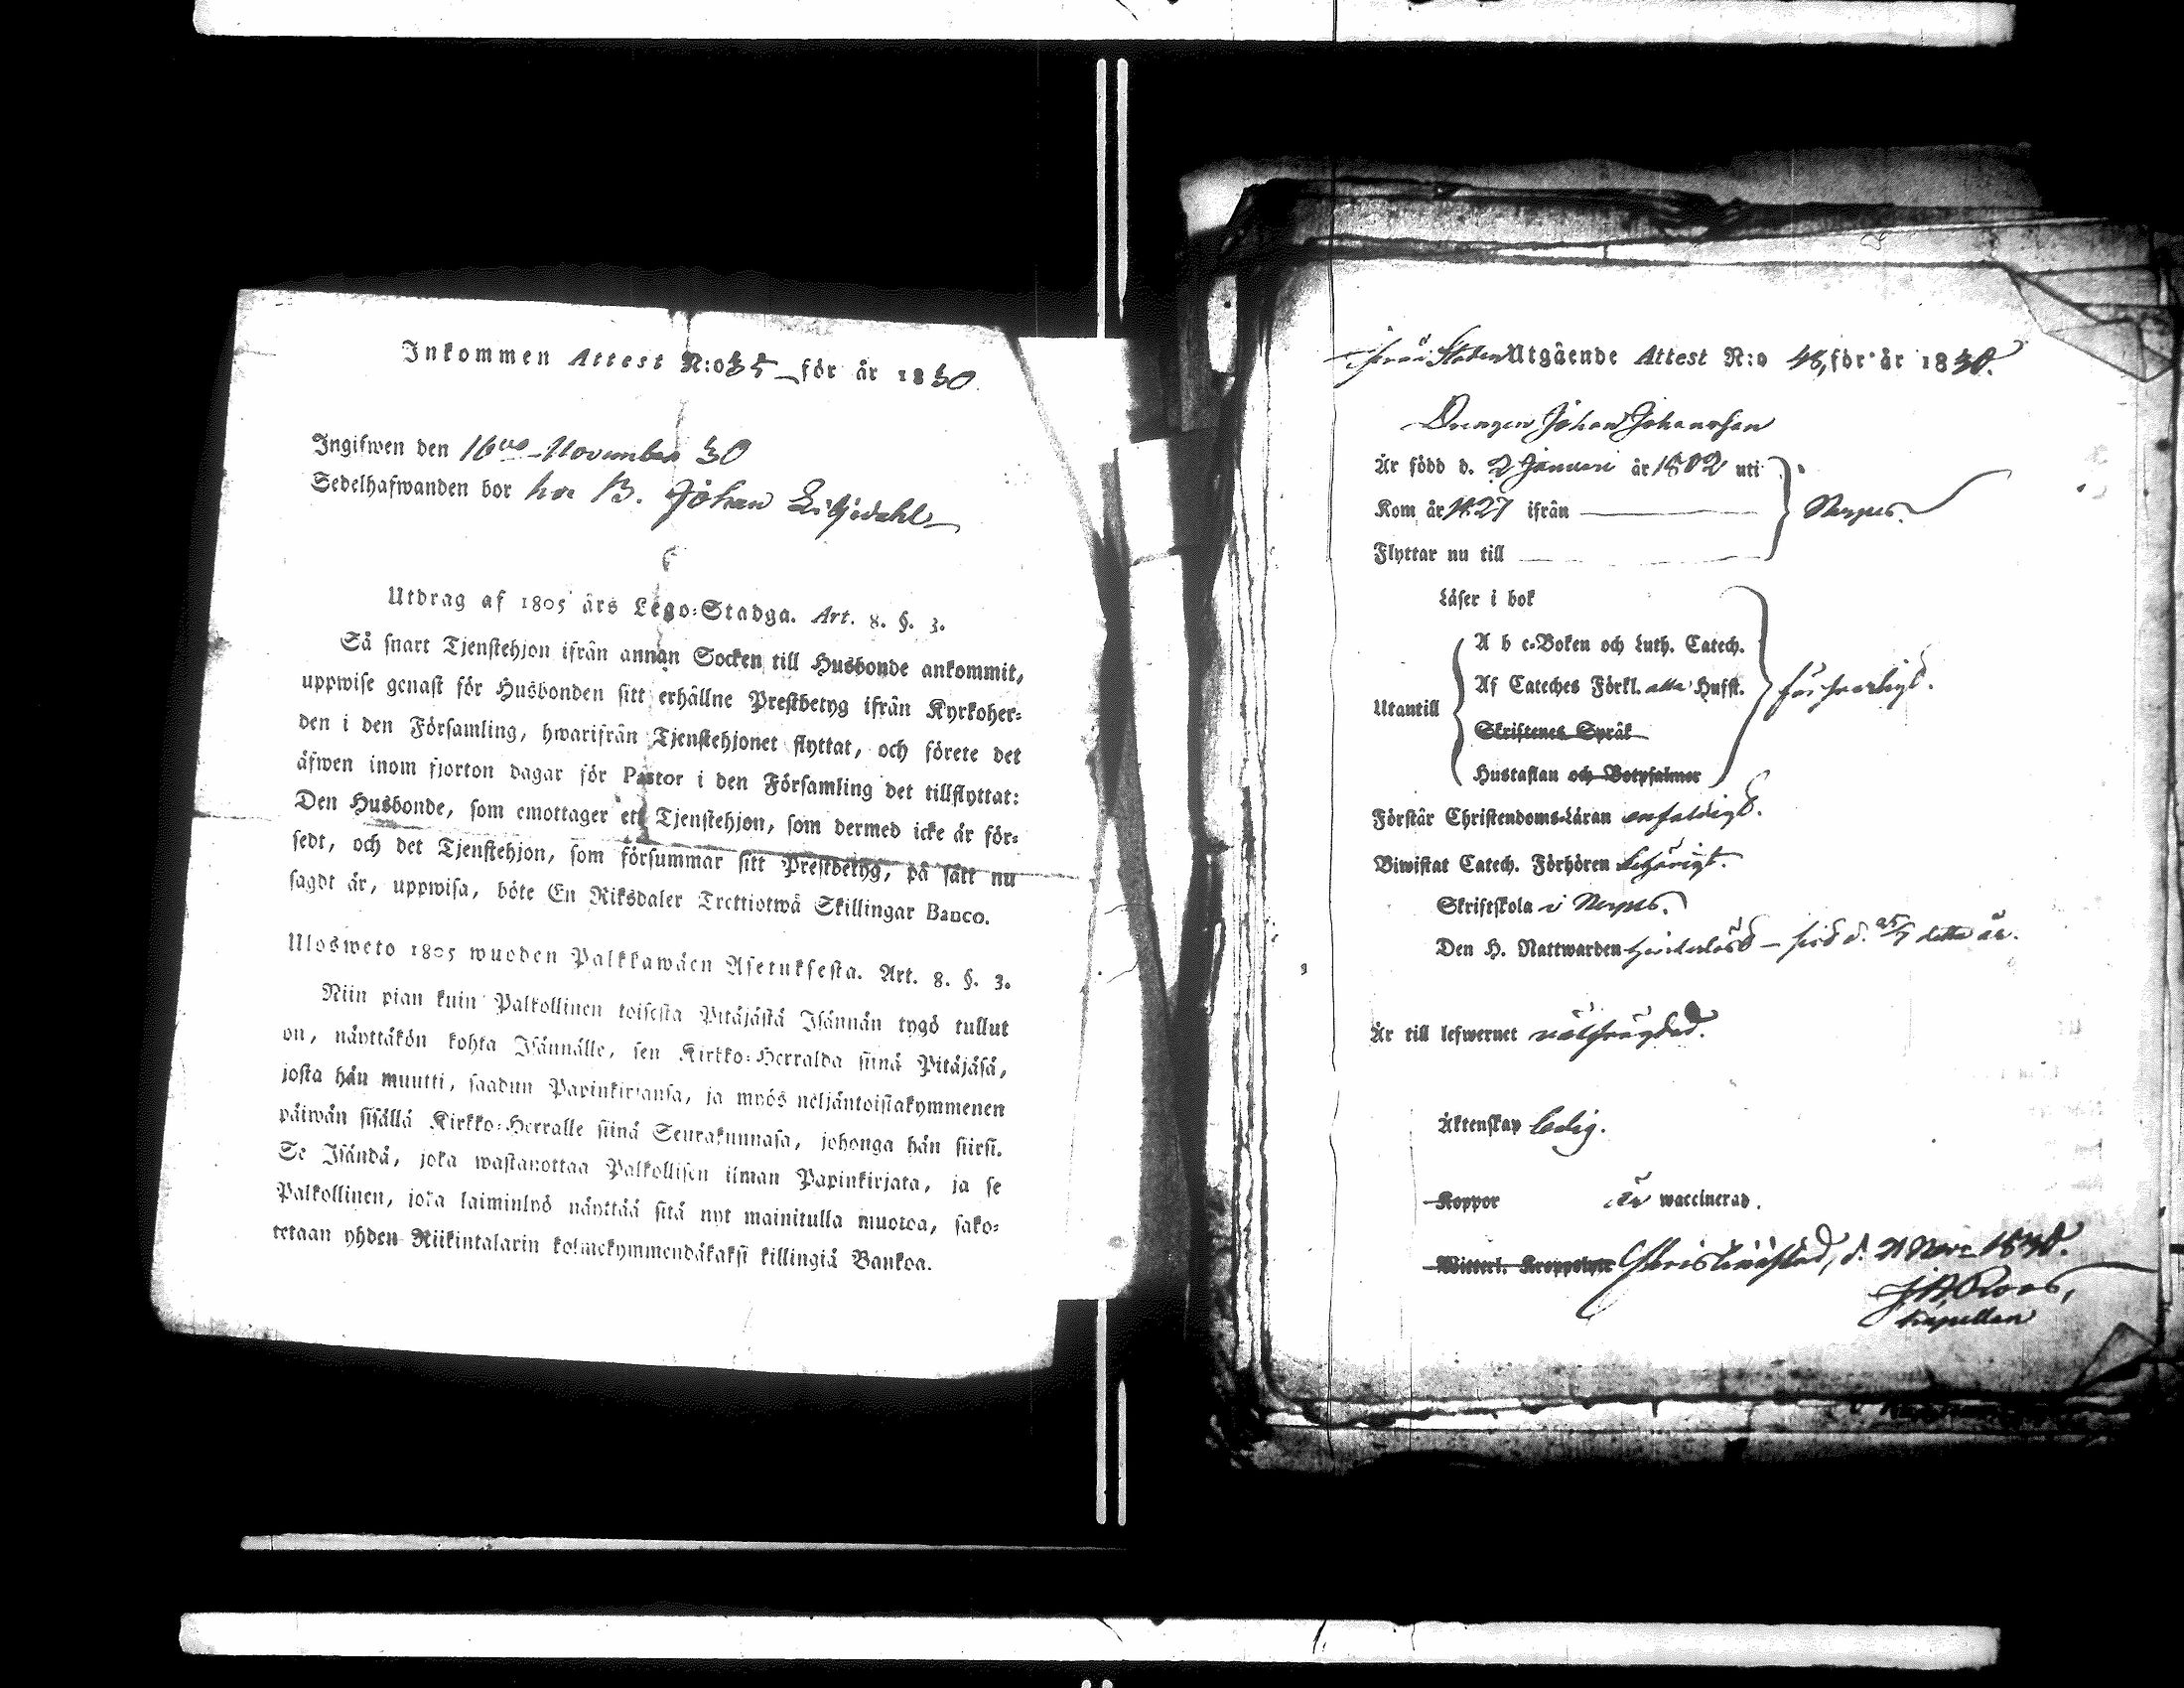 Inkommen Attest N:o 35 för år 1830.
Ingifwen den 16de November 30
Sedelhafwanden bor hos B. Johan Liljedahl
Utdrag af 1805 års Lego-Stadga. Art. 8. §. 3.
Så snart Tjenstehjon ifrån annan Socken till Husbonde ankommit,
uppwise genast för Husbonden sitt erhållne Prestbetyg ifrån Kyrkoher-
den i den Församling, hwarifrån Tjenstehjonet flyttat, och förete det
äfwen inom fjorton dagar för Pastor i den Församling det tillflyttat:
Den Husbonde, som emottager ett Tjenstehjon, som dermed icke är för-
sedt, och det Tjenstehjon, som försummar sitt Prestbetyg, på sätt nu
sagdt är, uppwisa, böte En Riksdaler Trettiotwå Skillingar Banco.
Ulosweto 1805 wuoden Palkkawäen Asetuksesta. Art. 8. §. 3.
Niin pian kuin Palkollinen toisesta Pitäjästä Isännän tygö tullut
on, näyttäkön kohta Isännälle, sen Kirkko-Herralda siinä Pitäjäsä,
josta hän muutti, saadun Papinkirjansa, ja myös neljäntoistakymmenen
päiwän sisällä Kirkko-Herralle siinä Seurakunnasa, johonga hän siirsi.
Se Isändä, joka wastanottaa Palkollisen ilman Papinkirjata, ja se
Palkollinen, joka laiminlyö näyttää sitä nyt mainitulla muotoa, sako-
tetaan yhden Riikintalarin kolmekymmendäkaksi killingiä Bankoa.
ifrån Staden Utgående Attest N:o 48, för år 1830.
Drengen Johan Johansson
Är född d. 2 Januari år 1802 uti
Kom år 1827 ifrån
Nerpes.
Flyttar nu till
Läser i bok
A b c-Boken och Luth. Catech.
Af Cateches Förkl. alla Hufst.
försvarligt.
Utantill
Skriftenes Språk
Hustaflan och Botpsalmer
Förstår Christendoms-Läran enfaldigt.
Biwistat Catech. Förhören behörigt.
Skriftskola i Nerpes.
Den H. Nattwarden hinderlöst – sist d. 25/7 detta år.
Är till lefwernet välfrägdad.
Äktenskap ledig.
Koppor är waccinerad.
Witterl. Kroppslyte Christinæstad, d. 2 Nov. 1830.
Kapellan